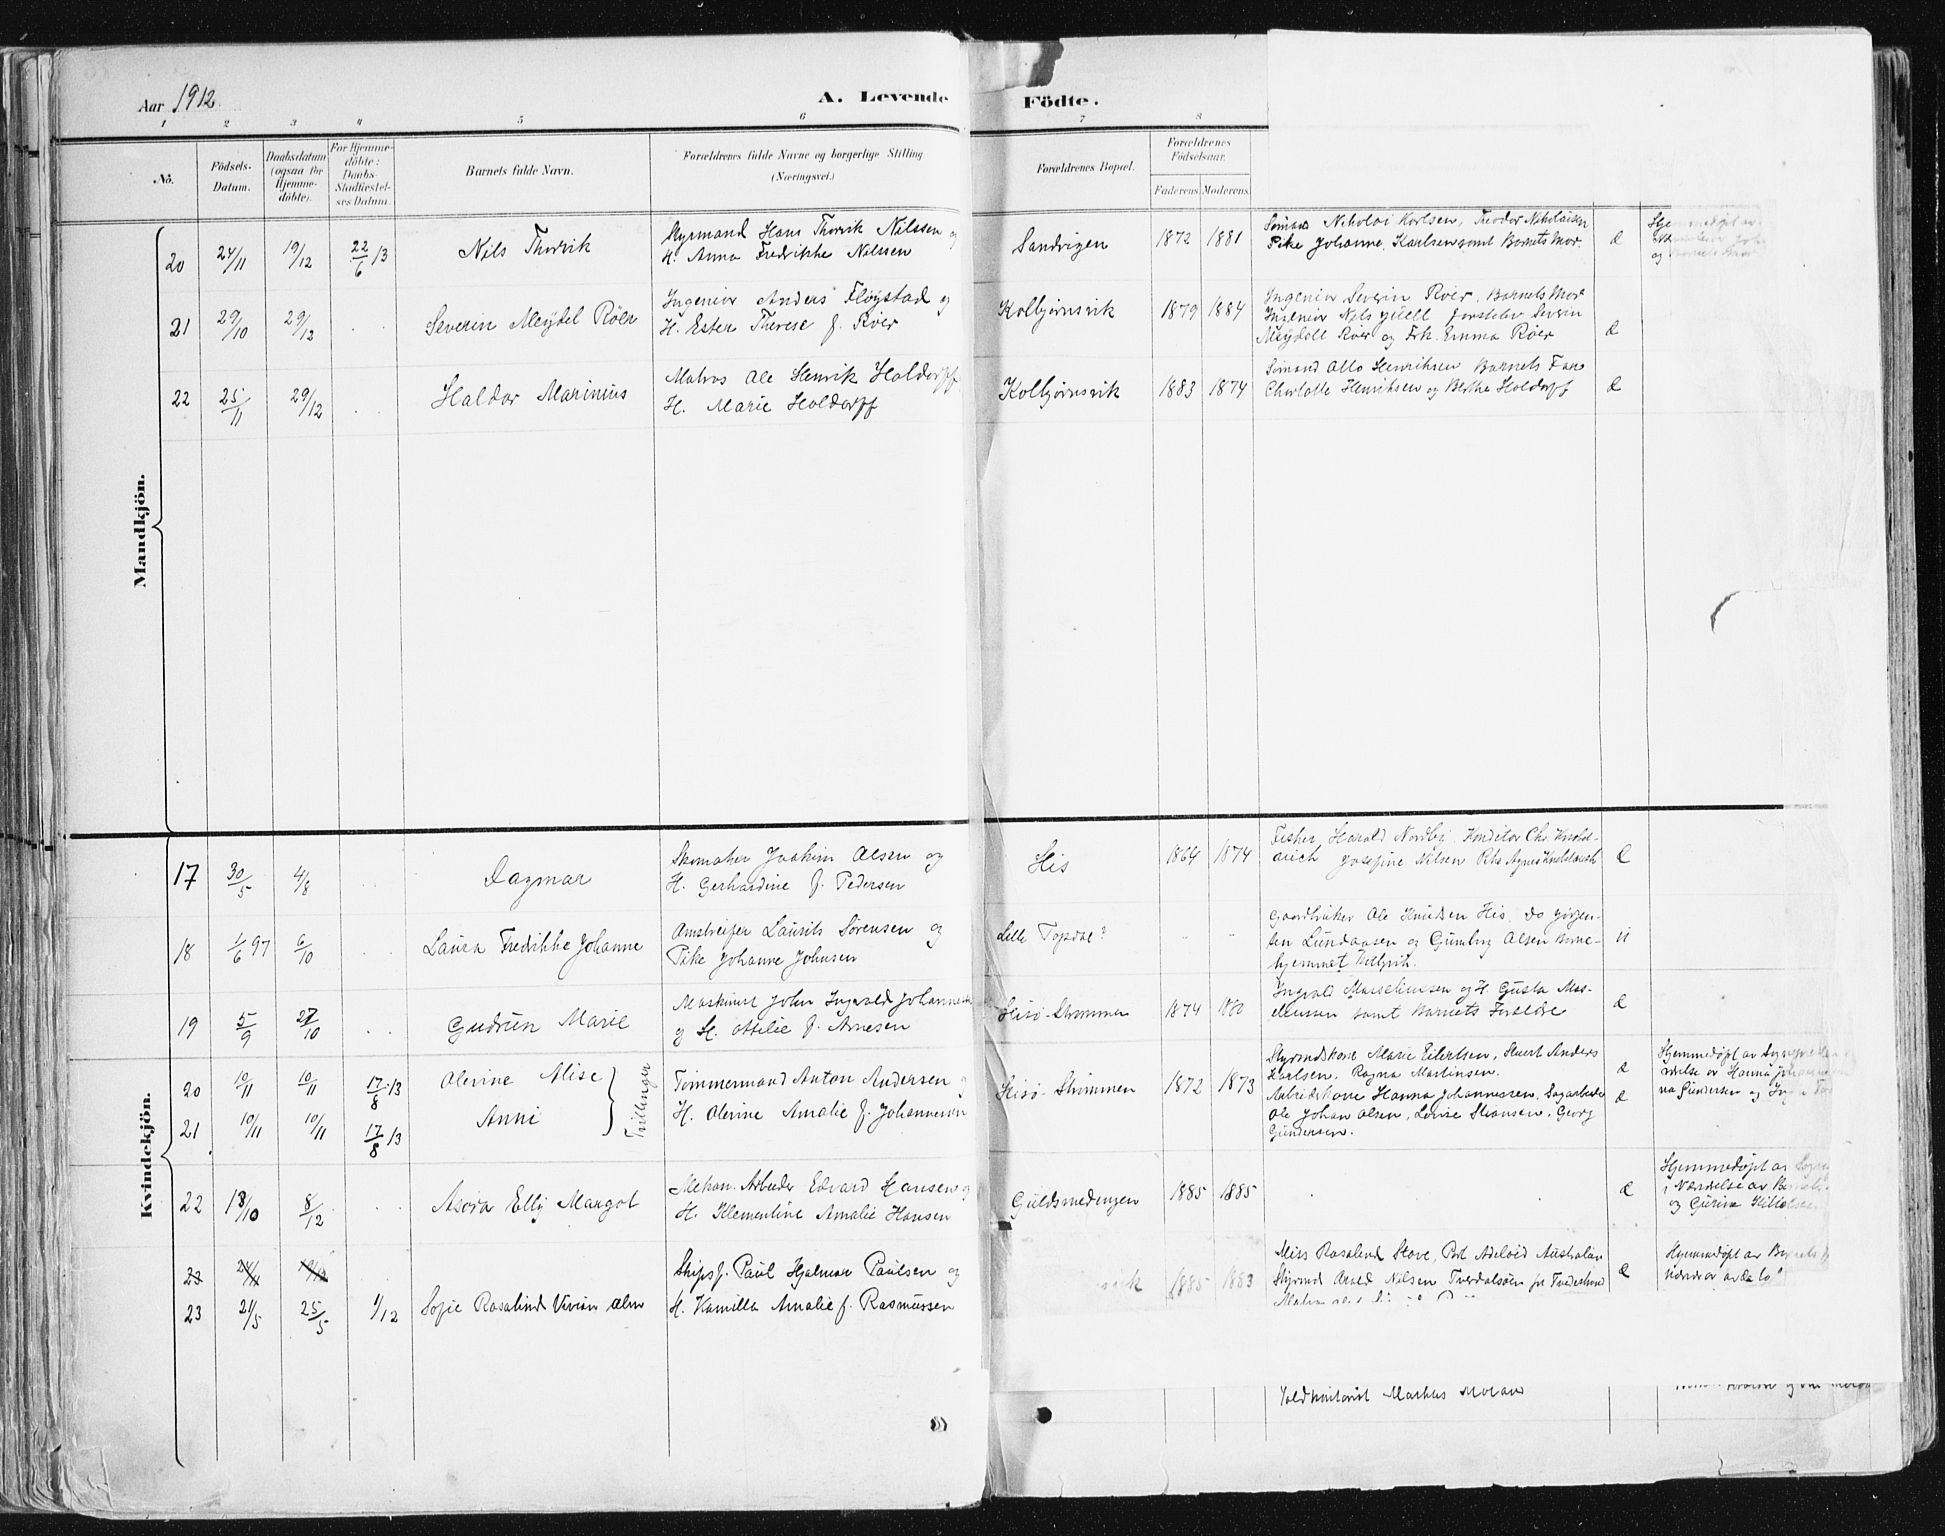 Aar 1912
A. Levende Födte.
1 2 3 4 5 6 7 8
No.
Födsels-Datum.
Daabsdatum (ogsaa for Hjemme-döbte).
For Hjemme-döbte: Daabs-Stadfæstel-ses Datum.
Barnets fulde Navn.
Forældrenes fulde Navne og borgerlige Stilling (Næringsvei.)
Forældrenes Bopæl.
Forældrenes Födselsaar.
Faderens. Moderens.
Mandkjön.
20 24/11 19/12 22/6 13 Nils Thorvik
Styrmand Hans Thorvik Nilssen og
H. Anna Fredrikke Nilssen
Sandvigen 1872 1881
Nikolai Karlsen, Theodor Nikolaisen
Pike Johanne Karlsen samt Barnets Mor.
21 29/10 29/12 Severin Meydel Röer
Ingeniør Anders Fløystad og
H. Ester Therese f. Røer
Kolbjørnsvik 1879 1884
Ingeniør Severin Røer, Barnets Mor
Ingeniør Nils Juell Severin
Meydell Røer og Frk. Emma Røer
22 25/11 29/12 Haldor Marinius
Matros Ole Henrik Holdorff
H. Marie Holdorff
Kolbjørnsvik 1883 1874
Sømand Otto Henriksen Barnets Far
Charlotte Henriksen og Berthe Holdorff
Kvindekjön.
17 30/5 4/8 Dagmar
Skomaker Joakim Olsen og
H. Gerhardine f. Pedersen
His 1864 1874
Fisker Harald Nordby, Konditor Chr. Knobl-
auch Josefine Nilsen Agnes Knoblauch
18 1/6 97 6/10 Laura Fredrikke Johanne
Laurits Sørensen og
Pike Johanne Johnsen
Lille Topdal?
Gaardbruker Ole Knudsen His. Do Jørgen-
sen Lundaasen og Gunborg Olsen Barne-
hjemmet
19 5/9 27/10 Gudrun Marie
Maskinist John Ingvald Johannesen
og H. Ottilie f. Arnesen
Hisø-Strømmen 1874 1880
Ingvald Marselinsen og H. Gusta
samt Barnets Forældre
20 10/11 10/11 17/8 13 Olerine Alise
21 10/11 10/11 17/8 13 Anni
Tvillinger
Tømmermand Anton Andersen og
H. Olerine Amalie f. Johannesen
Hisø-Strømmen 1872 1873
Styrmdskone Marie Eilertsen, Stuert Anders
Karlsen, Ragna Martinsen.
Arbeidskone Hanna Johannessen, Sagarbeider
Ole Johan Olsen, Lovise Svansen, Georg
Gundersen.
Hjemmedøpt av
22 18/10 8/12 Asora Elly Margot
Mekan. Arbeider Edvard Hansen og
H. Klementine Amalie Hansen
Guldsmedengen 1885 1885
Hjemmedøpt av
i Nærværelse av
og Gurine
23
23 21/5 25/5 1/12 Sofie Rosalind Vivian Alm
Skipsf. Paul Hjalmar Paulsen og
H. Kamilla Amalie f. Rasmussen
vik 1885 1883
Miss Rosalind Stove, Port Adelaid Australien
Styrmd Nilsen Tverdalsøen
Hjemmedøpt av
Markus